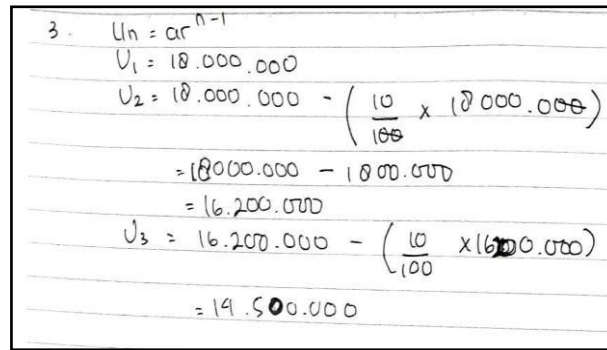 3. Un = ar^n-1
U1 = 18.000.000
U2 = 18.000.000 - (10/100 x 18000.000)
= 18000.000 - 1800.000
= 16.200.000
U3 = 16.200.000 - (10/100 x 16200.000)
= 14.500.000